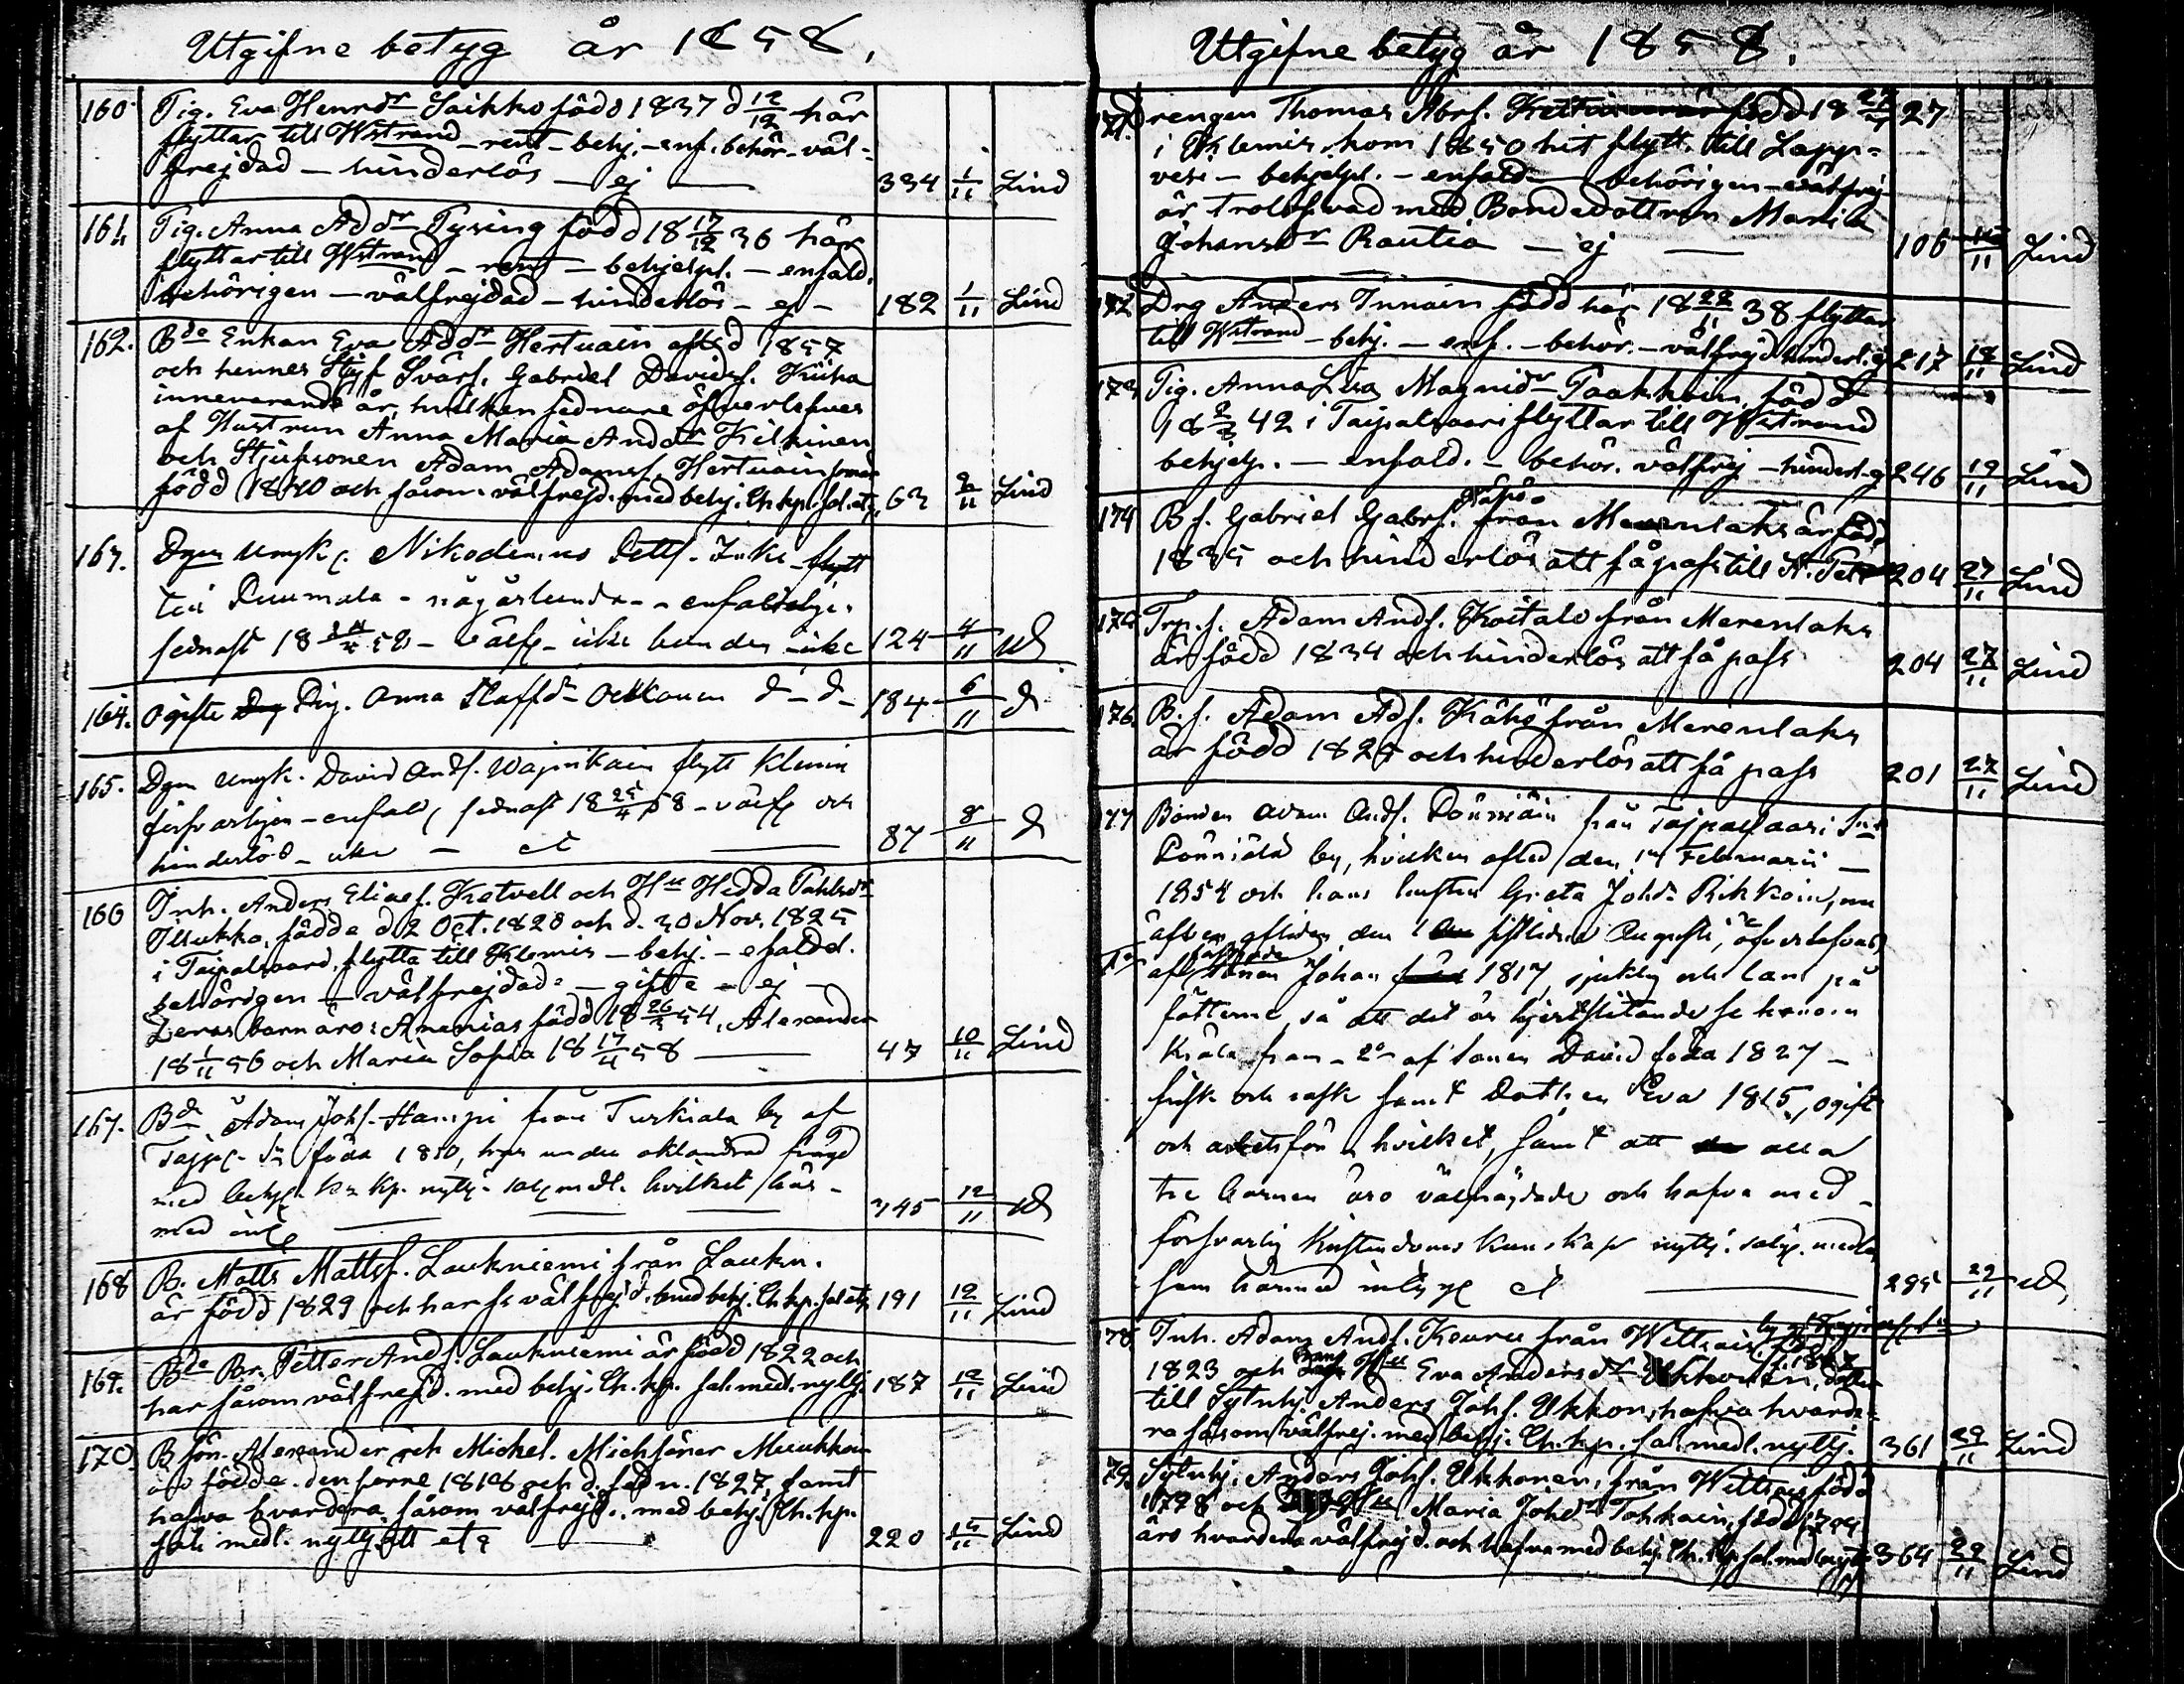 Utgifne betyg år 1858.
160 Pig. Eva Henrdr Saikko född 1837 d 12/12 här
flyttar till Wstrand - rent - behj. - enf. behör - väl-
frejdad - hinderlös - ej 334 1/11 Lind
161. Pig. Anna Addr Pysing född 18 17/12 36 här
flyttar till Wstrand - rent - behjelpl. - enfald.
behörigen - välfrejdad - hinderlös - ej - 182 1/11 Lind
162. Bde Enkan Eva Addr Hertuain afled 1857
och hennes Styf Svärf. Gabriel Davidsf. Kiiha
innevarande år, hvilken sednare öfverlefves
af Hustrun Anna Maria Anddr Kilkinen
och Stjufsonen Adam Adamsf. Hertuain
född 1840 och såsom välfrejd. med behj. Ch. kp. 63 2/11 Lind
163. Dgen Nikodemus flytt
till Puumala - någorlunda - enfaldeligen
sednast 18 58 - välfr - icke bunden - icke 124 4/11
164. Ogifte Pig. Anna Staffdr d - d - 184 6/11 d
165. Dgen David Andf. flytt Klemis
försvarligen - enfald, sednast 18 25/4 58 - välfr och
hinderlös - 87 8/11 d
166 Inh. Anders Eliasf. Kietvell och Hu Hedda Pahlsdr
Ilsukko, födde d 2 Oct. 1828 och d. 30 Nov. 1825
i Taipalsaari, flytta till Klemis - behj. - efaldel.
behörigen - välfrejdade - gifta - ej -
Deras barn äro: Ananias född 18 26/ 54, Alexander
18 1/11 56 och Maria Sofia 18 17/ 58 47 10/11 Lind
167. Bde Adam Johf. Hampi från Turkiala by af
född 1810, under oklandrad frejd
med kp. nyttj. hvilket här-
med 345 12/11
168 B. Matts Mattsf. Laukniemi från Laukn.
är född 1829 och har ss välfrejd. med behj. Ch. kp. 191 12/11 Lind
169. Bde Br. Petter Andf. Laukniemi är född 1822 och
har såsom välfrejd. med behj. Ch. kp. sal. med. nyttj. 187 12/11 Lind
170. B sön. Alexander och Michel. Michsöner Muukkon
äro födde den förre 1818 och d. sedn. 1827, samt
hafva hvardera såsom välfrejd. med behj. Ch. kp.
sal. medl. nyttj. 220 15/11 Lind
Utgifne betyg år 1858.
171. Drengen Thomas Abrf. född 18 27/ 27
i Klemis, kom 1850 hit flytt. till Lapp-
vesi - behjelpl. - enfald. - behörigen - välfrej
är trolofvad med Bondedottren Maria
Johansdr Rautia - ej 106 11 Lind
172 Drg Anders Innain född här 18 22/11 38 flyttar
till Wstrand - behj. - enf. - behör. - välfrejd hinderl. ej 217 18/11 Lind
173 Pig. Anna Lisa Magnidr Paakkoin, född
18 2/8 42 i Taipalsaari flyttar till Wstrand
behjelp. - enfald. - behör. välfrej - hinderl. ej 246 19/11 Lind
174 B f. Gabriel Gabrf. från Merenlaks är född
1835 och hinderlös att få pass till S. Pet 204 27/11 Lind
175 Trp. f. Adam Andf. Koitalo från Merenlaks
är född 1834 och hinderlös att få pass 204 27/11 Lind
176 B. f. Adam Adf. Kähö från Merenlaks
är född 1829 och hinderlös att få pass 201 27/11 Lind
177 Bonden Adam Andf. Pönniäin från Taipalsaari
Pönniälä by, hvilken afled den 1 Februarii
1854 och hans hustru Greta Johdr Rikkoin, nu
äfven afliden den 1 sistlidne Augusti, öfverlefvas
af sonen Johan 1817, sjuklig och lam på
fötterne, så att det är hjertslitande se honom
kräla fram - 2o af sonen David född 1827 -
frisk och rask samt Dottren Eva 1815, ogift
och arbetsför, hvilket, samt att alla
tre barnen äro välfrejdade och hafva med
försvarlig Kristendoms Kunskap nyttj. salig. medlen
som härmed intygs 295 29/11
178 Inh. Adam Andf. Keuru från Wittsais
1823 och Hu Eva Andersdr Ukkonen, dotter
till Sytnhj. Anders Johf. Ukkon, hafva hvarde-
ra såsom välfrej. med behj. Ch. kp. sal. medl. nyttj. 361 29/11 Lind
179 Sytnhj. Anders Johf. Ukkonen, från Wittsais född
1798 och Hu Maria Johdr Tohkain, född 1799
äro hvardera välfrejd. och hafva med behj. Ch. kp. sal. med. nyttj 364 29/11 Lind